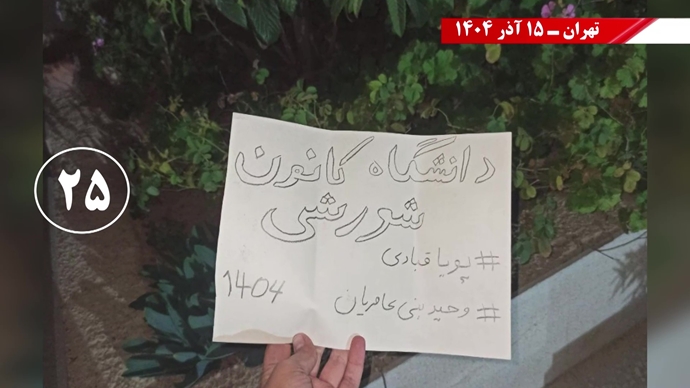 تهران ــ ۱۵ آذر ۱۴۰۴
۲۵
دانشگاه کانون
شورشی
#پویا قبادی
#وحید بنی عامریان
1404